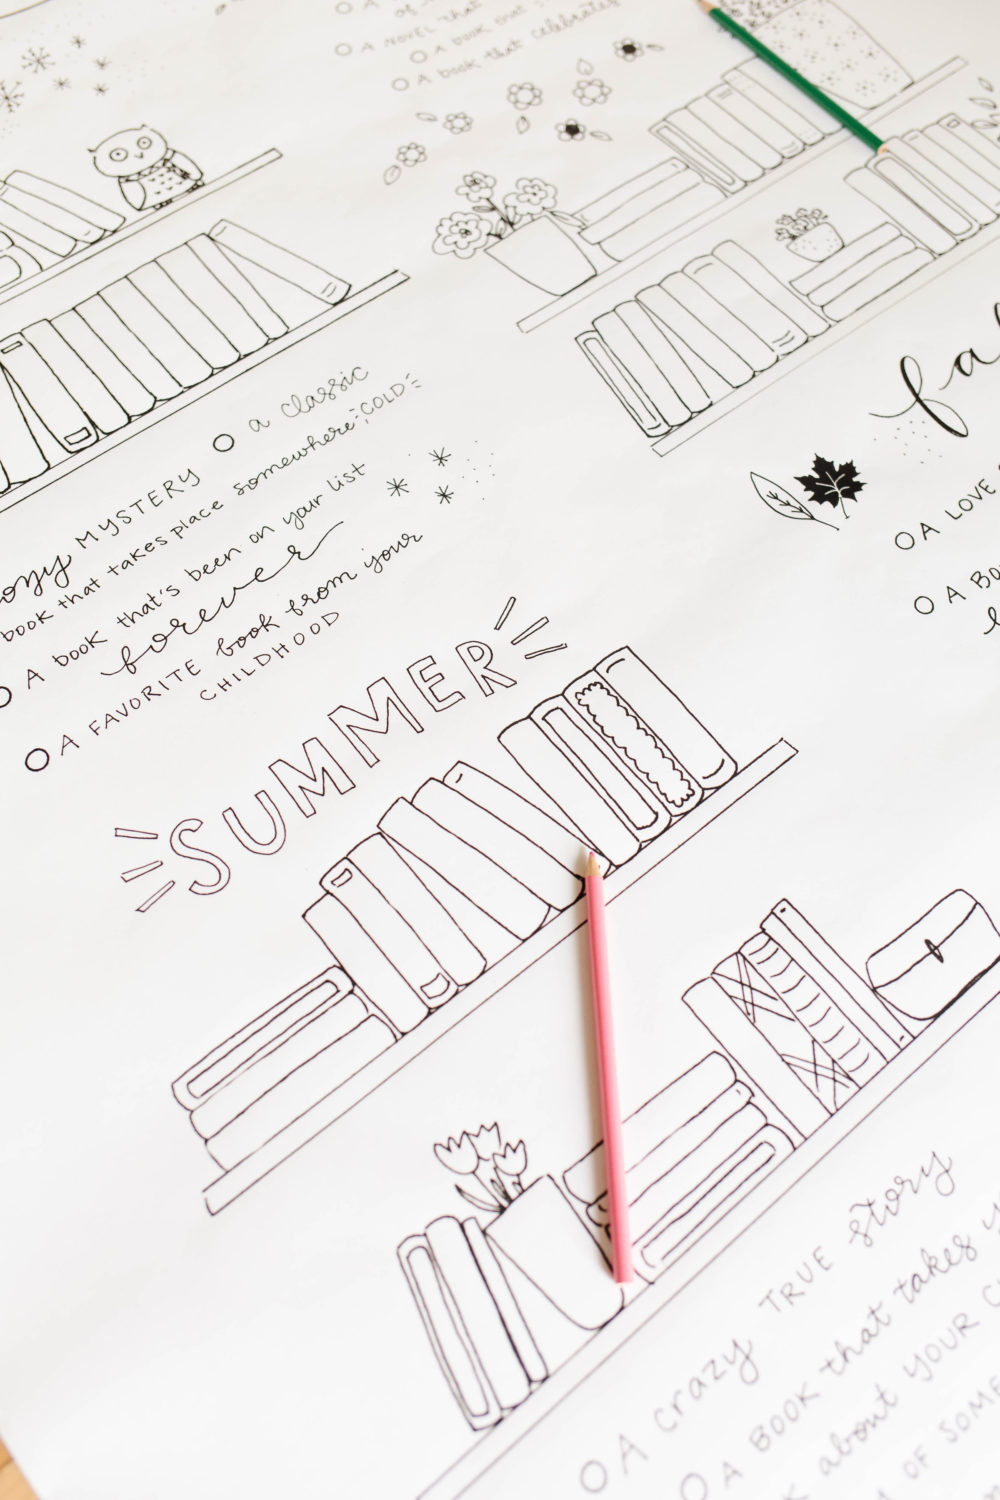 A NOVEL that
A book that
A book that celebrates
a classic
cozy MYSTERY
book that takes place somewhere COLD
A book that's been on your list
forever
A FAVORITE book from your
CHILDHOOD
fal
A LOVE
A BO
SUMMER
A crazy TRUE story
A BOOK that takes y
about YOUR C
OF SOME